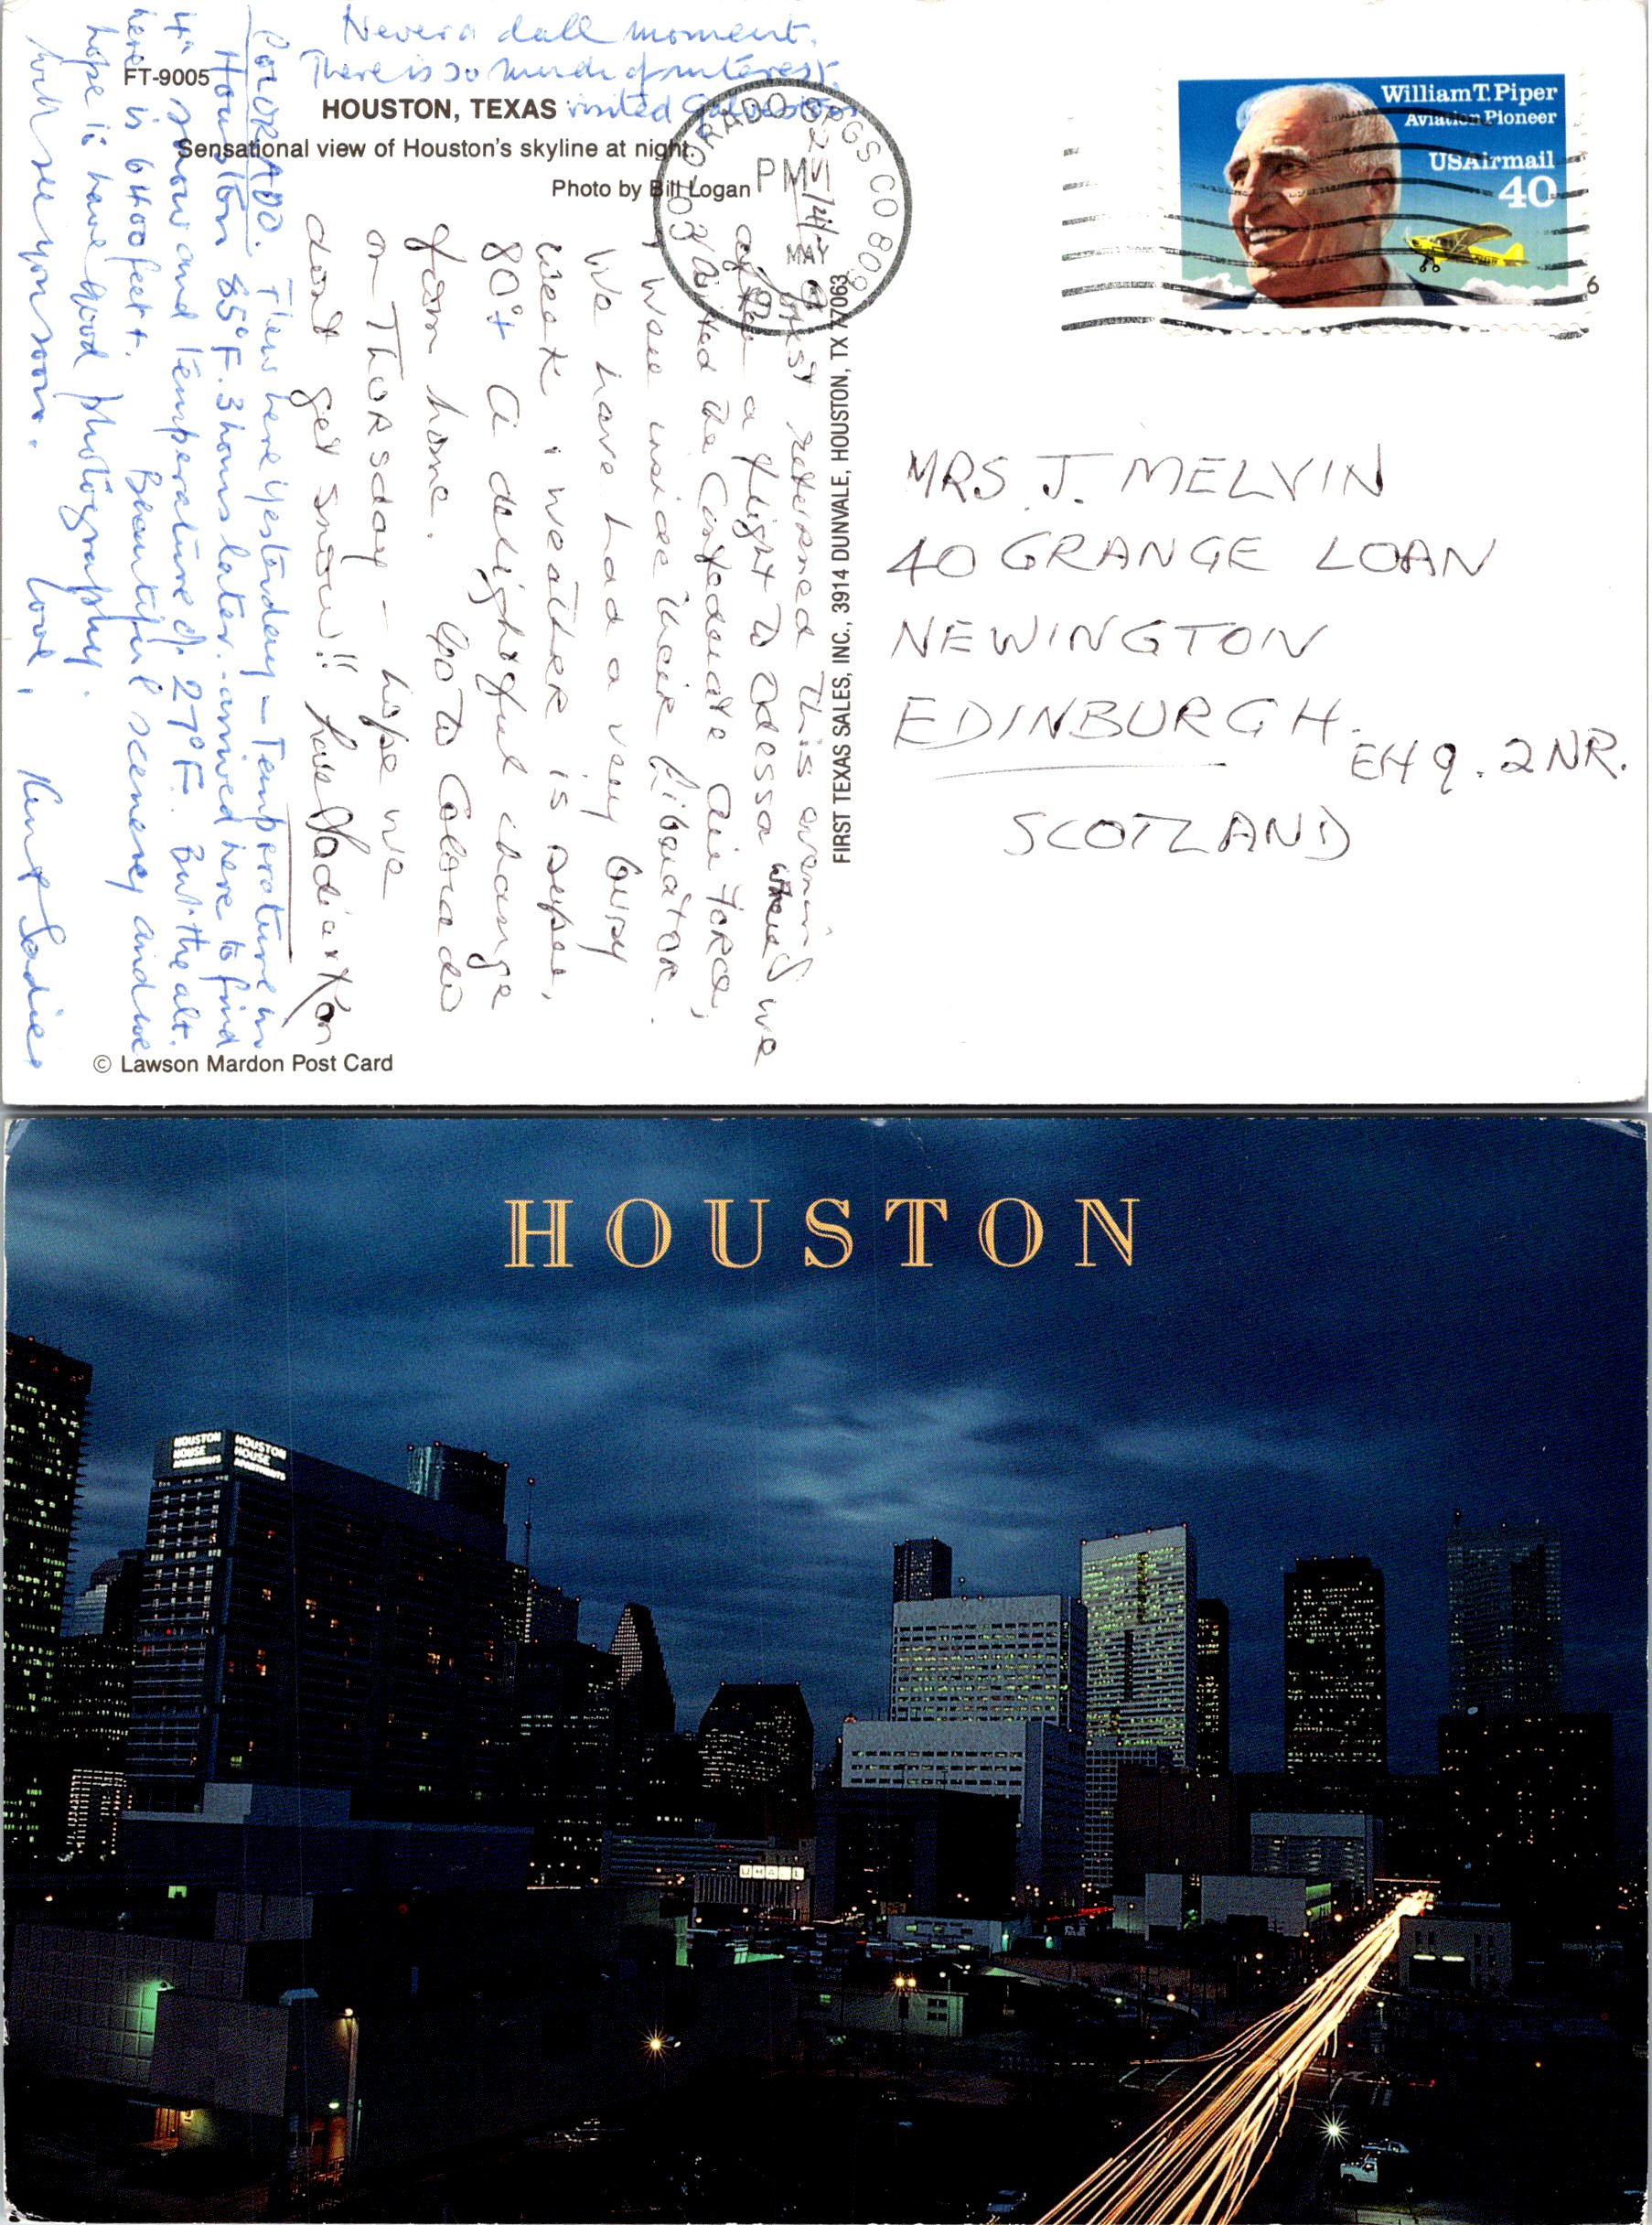 Never a dull moment.
There is so much of interest.
visited Galveston
FT-9005
HOUSTON, TEXAS
Sensational view of Houston's skyline at night.
Photo by Bill Logan
COLORADO SPGS CO 809
PM
MAY
William T. Piper
Aviation Pioneer
USAirmail
40
6
just returned this evening
after a flight to Odessa where we
visited the Confederate Air Force,
& were inside their Liberator.
We have had a very busy
week & weather is super,
80°+ a delightful change
from home. Go to Colorado
on Thursday – hope we
don't get snow!! Love Sadie & Ken
COLORADO. Flew here yesterday – Temperature in
Houston 85°F. 3 hours later - arrived here to find
4" snow and temperature of 27°F. But the alt.
here is 6400 feet. Beautiful scenery and we
hope to have good photography.
Will see you soon. Love, Ken & Sadie
FIRST TEXAS SALES, INC., 3914 DUNVALE, HOUSTON, TX 77063
MRS J. MELVIN
40 GRANGE LOAN
NEWINGTON
EDINBURGH.
EH9. 2NR.
SCOTLAND
© Lawson Mardon Post Card
HOUSTON
HOUSTON
HOUSE
APARTMENTS
HOUSTON
HOUSE
APARTMENTS